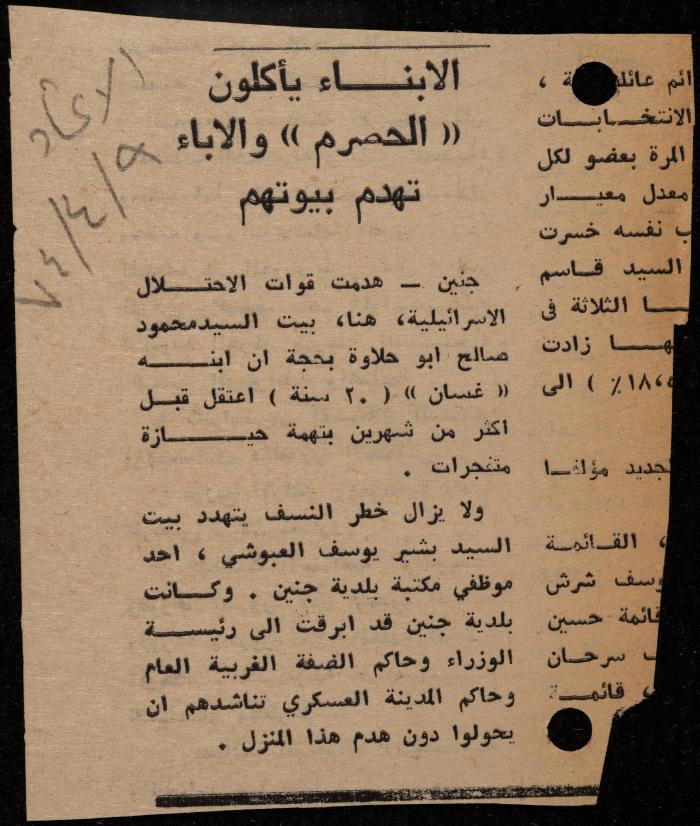 الابنـــاء يأكلون
« الحصرم » والاباء
تهدم بيوتهم
جنين ـ هدمت قوات الاحتـــلال
الاسرائيلية، هنا، بيت السيدمحمود
صالح ابو حلاوة بحجة ان ابنـــه
« غسان » ( ٢٠ سنة ) اعتقل قبـل
اكثر من شهرين بتهمة حيـــازة
متفجرات .
ولا يزال خطر النسف يتهدد بيت
السيد بشير يوسف العبوشي ، احد
موظفي مكتبة بلدية جنين . وكـــانت
بلدية جنين قد ابرقت الى رئيســـة
الوزراء وحاكم الضفة الغربية العام
وحاكم المدينة العسكري تناشدهم ان
يحولوا دون هدم هذا المنزل .
ائم ،
الانتخـابـات
المرة بعضو لكل
معدل معيـــار
نفسه خسرت
السيد قـاسم
الثلاثة فى
زادت
٪ ) الى
مؤلفـا
، القـائمـة
شرش
قائمة حسين
سرحـان
، قائمـــة
الاتحاد
٧٤/٤/٩